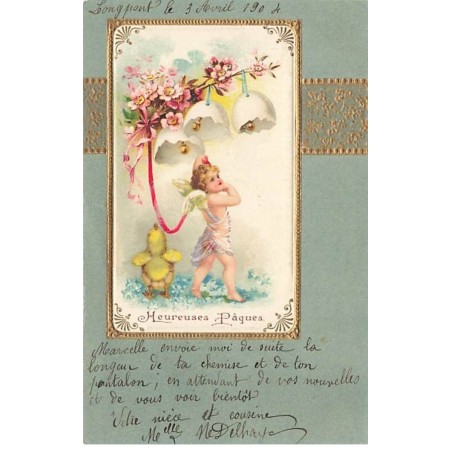 Longpont le 3 Avril 1904
Heureuses Pâques
Marcelle envoie moi de suite la
longeur de ta chemise et de ton
pantalon ; en attendant de vos nouvelles
et de vous voir bientôt
Votre nièce et cousine
Melle